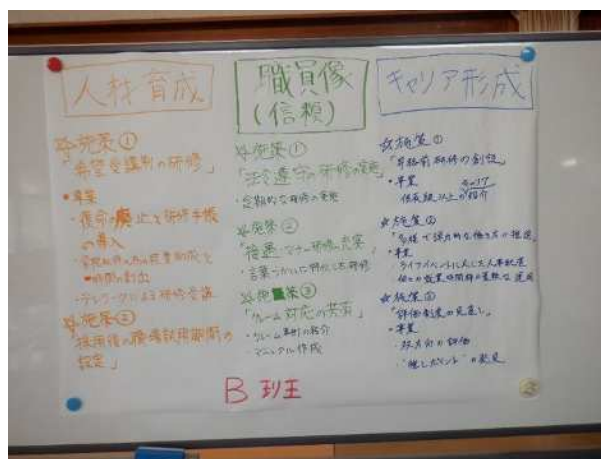 人材育成
☆施策①
「希望受講別の研修」
・事業
・復命の廃止と研修手帳
の導入
時間の創出
・テレワークによる研修受講
☆施策②
「採用後の職場試用期間の
設定」
職員像
(信頼)
☆施策①
「法令遵守の研修の実施」
・定期的な研修の実施
☆施策②
「接遇・マナー研修の充実」
・言葉づかいに特化した研修
☆施策③
「クレーム対応の共有」
・クレーム事例の紹介
・マニュアル作成
キャリア形成
☆施策①
「昇格前研修の創設」
・事業
係長級以上が紹介
☆施策②
「多様で弾力的な働き方の推進」
・事業
・ライフイベントに応じた人事配置
☆施策③
「評価制度の見直し」
・事業
・双方向の評価
B 班